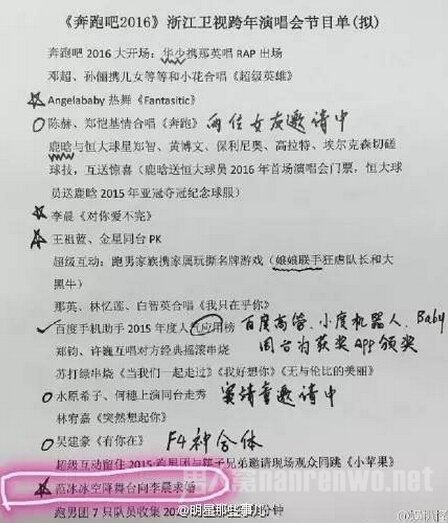 《奔跑吧2016》浙江卫视跨年演唱会节目单(拟)
奔跑吧 2016 大开场：华少携那英唱 RAP 出场
邓超、孙俪携儿女等等和小花合唱《超级英雄》
Angelababy 热舞《Fantasitic》
陈赫、郑恺基情合唱《奔跑》 两位女友邀请中
鹿晗与恒大球星郑智、黄博文、保利尼奥、高拉特、埃尔克森切磋
球技，互送惊喜（鹿晗送恒大队员 2016 年首场演唱会门票，恒大球
员送鹿晗 2015 年亚冠夺冠纪念球服）
李晨《对你爱不完》
王祖蓝、金星同台 PK
超级互动：跑男家族携家属玩撕名牌游戏（娘娘联手狂虐队长和大
黑牛）
那英、林忆莲、白智英合唱《我只在乎你》
百度手机助手 2015 年度人气应用榜 百度高管、小度机器人、Baby
同台为获奖App颁奖
郑钧、许巍互唱对方经典摇滚串烧
苏打绿串烧《当我们一起走过》《我好想你》《无与伦比的美丽》
水原希子、何穗上演同台走秀 窦靖童邀请中
林宥嘉《突然想起你》
吴建豪《有你在》 F4神合体
超级互动留住 2015 跑男团与筷子兄弟邀请现场观众同跳《小苹果》
范冰冰空降舞台向李晨求婚
跑男团 7 只队员收集 20 分钟
明星那些事儿
nanrenwo.net